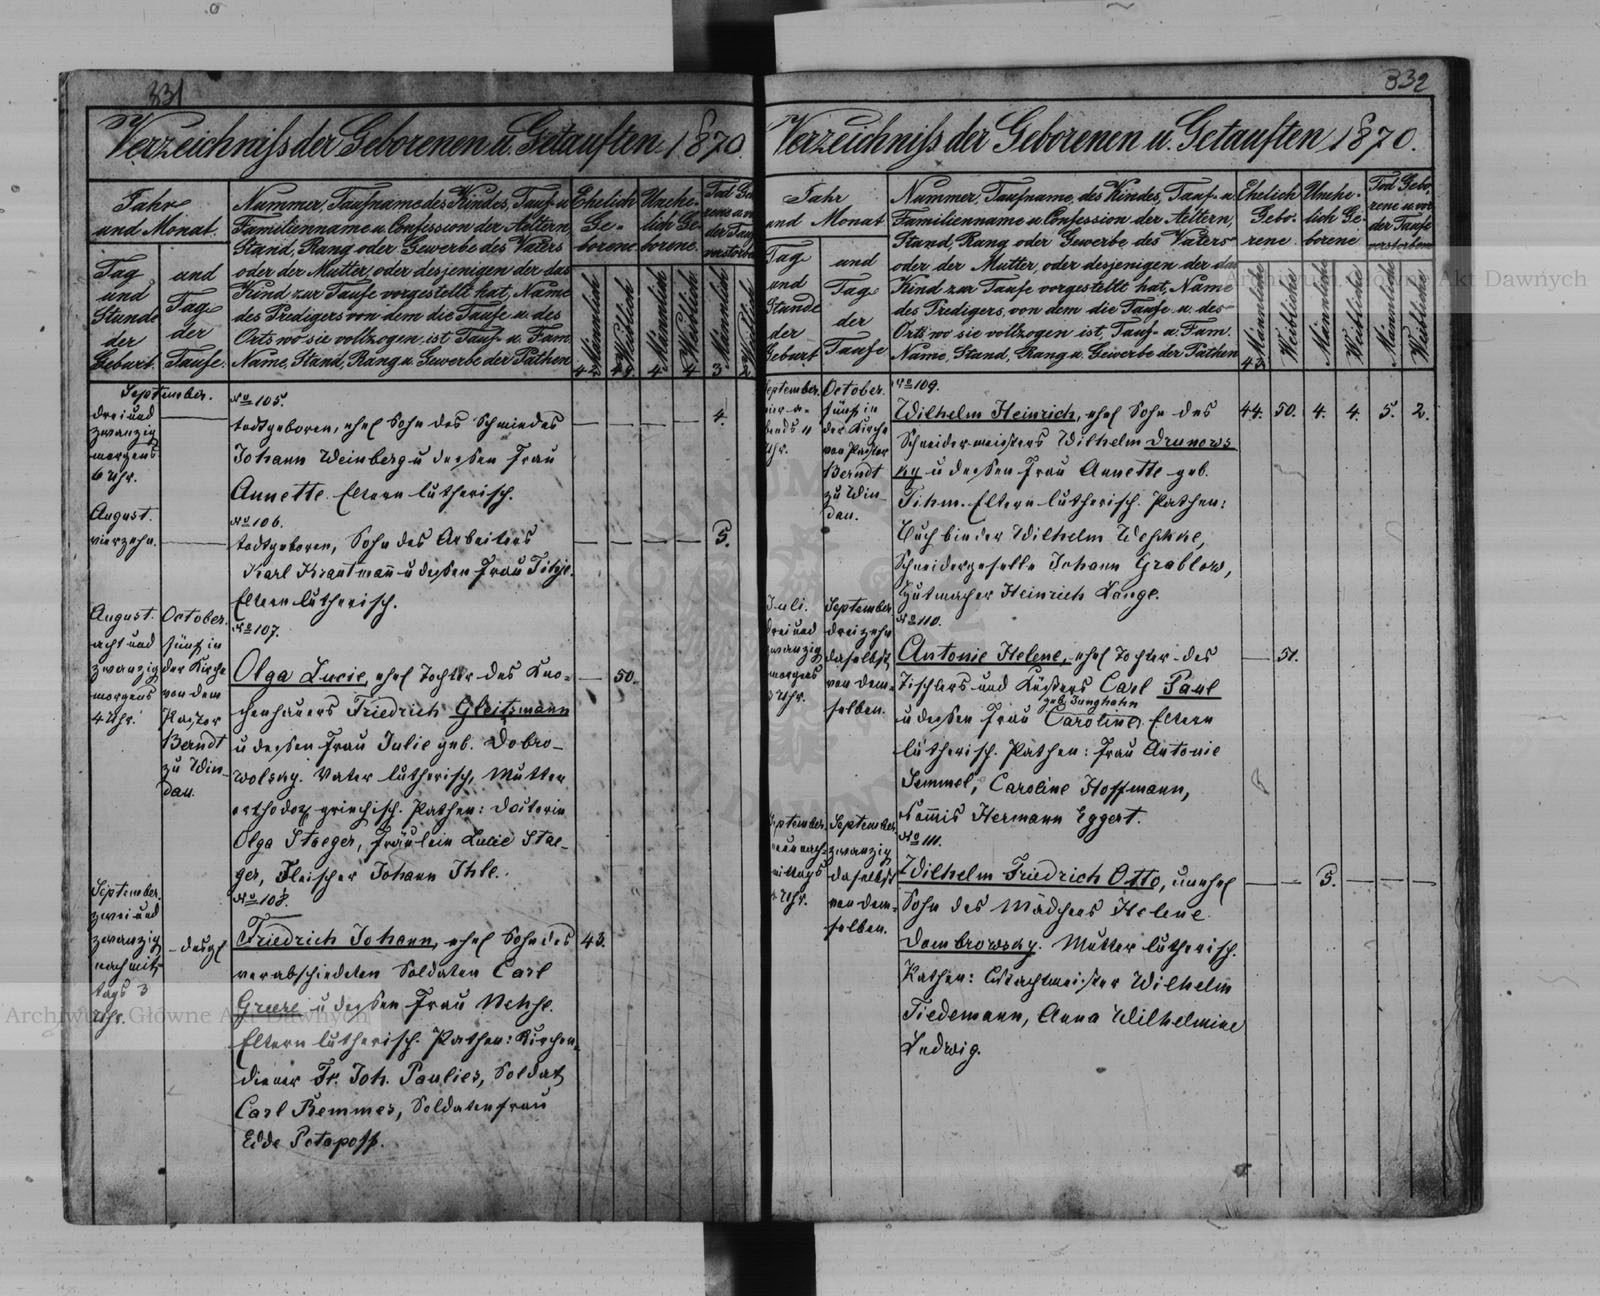 331
Verzeichniſs der Geborenen u. Getauften 1870.
Jahr
und Monat.
Tag
und
Stunde
der
Geburt.
und
Tag
der
Taufe.
Nummer, Taufname des Kindes, Tauf- u.
Familienname u. Confession der Aeltern,
Stand, Rang oder Gewerbe des Vaters
oder der Mutter, oder desjenigen der das
Kind zur Taufe vorgestellt hat, Name
des Predigers von dem die Taufe u. des
Orts wo sie vollzogen ist, Tauf- u. Fam.
Name, Stand, Rang u. Gewerbe der Pathen
Ehelich
Ge-
borene
Unehe-
lich Ge-
borene
Männlich
Weiblich
Männlich
Weiblich
Männlich
Weiblich
September.
drei und
zwanzig
morgens
6 Uhr.
No 105.
todtgeboren, ehel Sohn des Schmiedes 4.
Johann Weinberg u dessen Frau
Annette. Eltern lutherisch.
August.
vierzehn.
No 106.
todtgeboren, Sohn des Arbeiters 5.
Karl Krautmann u dessen Frau
Eltern lutherisch.
August.
acht und
zwanzig
morgens
4 Uhr.
October.
fünf in
der Kirche
von dem
Pastor
Berndt
zu Win-
dau.
No 107.
Olga Lucie, ehel Tochter des Kno- 50.
chenhauers Friedrich Gleitsmann
u dessen Frau Julie geb. Dobro-
wolsky. Vater lutherisch, Mutter
orthodox griechisch. Pathen: Doctorin
Olga Staeger, Fräulein Lucie Stae-
ger, Fleischer Johann Ihle.
September.
zwei und
zwanzig
nachmit-
tags 3
Uhr.
desgl
No 108.
Friedrich Johann, ehel Sohn des 43.
verabschiedeten Soldaten Carl
u dessen Frau
Eltern lutherisch. Pathen: Kirchen-
diener Fr. Joh. Paulies, Soldat
Carl Remmes, Soldatenfrau
Edde Potapoff.
332
Verzeichniſs der Geborenen u. Getauften 1870.
Jahr
und Monat
Tag
und
Stunde
der
Geburt
und
Tag
der
Taufe
Nummer, Taufname des Kindes, Tauf- u.
Familienname u. Confession der Aeltern,
Stand, Rang oder Gewerbe des Vaters
oder der Mutter, oder desjenigen der das
Kind zur Taufe vorgestellt hat, Name
des Predigers, von dem die Taufe u. des
Orts wo sie vollzogen ist, Tauf- u. Fam.
Name, Stand, Rang u. Gewerbe der Pathen
Ehelich
Gebo-
rene
Unehe-
lich Ge-
borene
Todt Gebo-
rene u. vor
der Taufe
verstorbene
Männliche
Weibliche
Männliche
Weibliche
Männliche
Weibliche
September.
Uhr.
October.
fünf in
der Kirche
von Pastor
Berndt
zu Win-
dau.
No 109.
Wilhelm Heinrich, ehel Sohn des 44. 50. 4. 4. 5. 2.
Schneidermeisters Wilhelm Drunows
ky u dessen Frau Annette geb.
Tihm. Eltern lutherisch. Pathen:
Buchbinder Wilhelm Weschke,
Schneidergeselle Johann Grablow,
Hutmacher Heinrich Lange.
Juli.
drei und
zwanzig
morgens
Uhr.
September
dreizehn
daselbst
von dem-
selben.
No 110.
Antonie Helene, ehel Tochter des 51.
Tischlers und Küsters Carl Paul
geb. Junghahn
u dessen Frau Caroline. Eltern
lutherisch. Pathen: Frau Antonie
Semmel, Caroline Hoffmann,
Commis Hermann Eggert.
September.
neun nach-
mittags
Uhr.
September
zwanzig
daselbst
von dem-
selben.
No 111.
Wilhelm Friedrich Otto, unehel 5.
Sohn des Mädchens Helene
Dombrowsky. Mutter lutherisch.
Pathen: Wachtmeister Wilhelm
Tiedemann, Anna Wilhelmine
Ludwig.
Archiwum Główne Akt Dawnych
Archiwum Główne Akt Dawnych